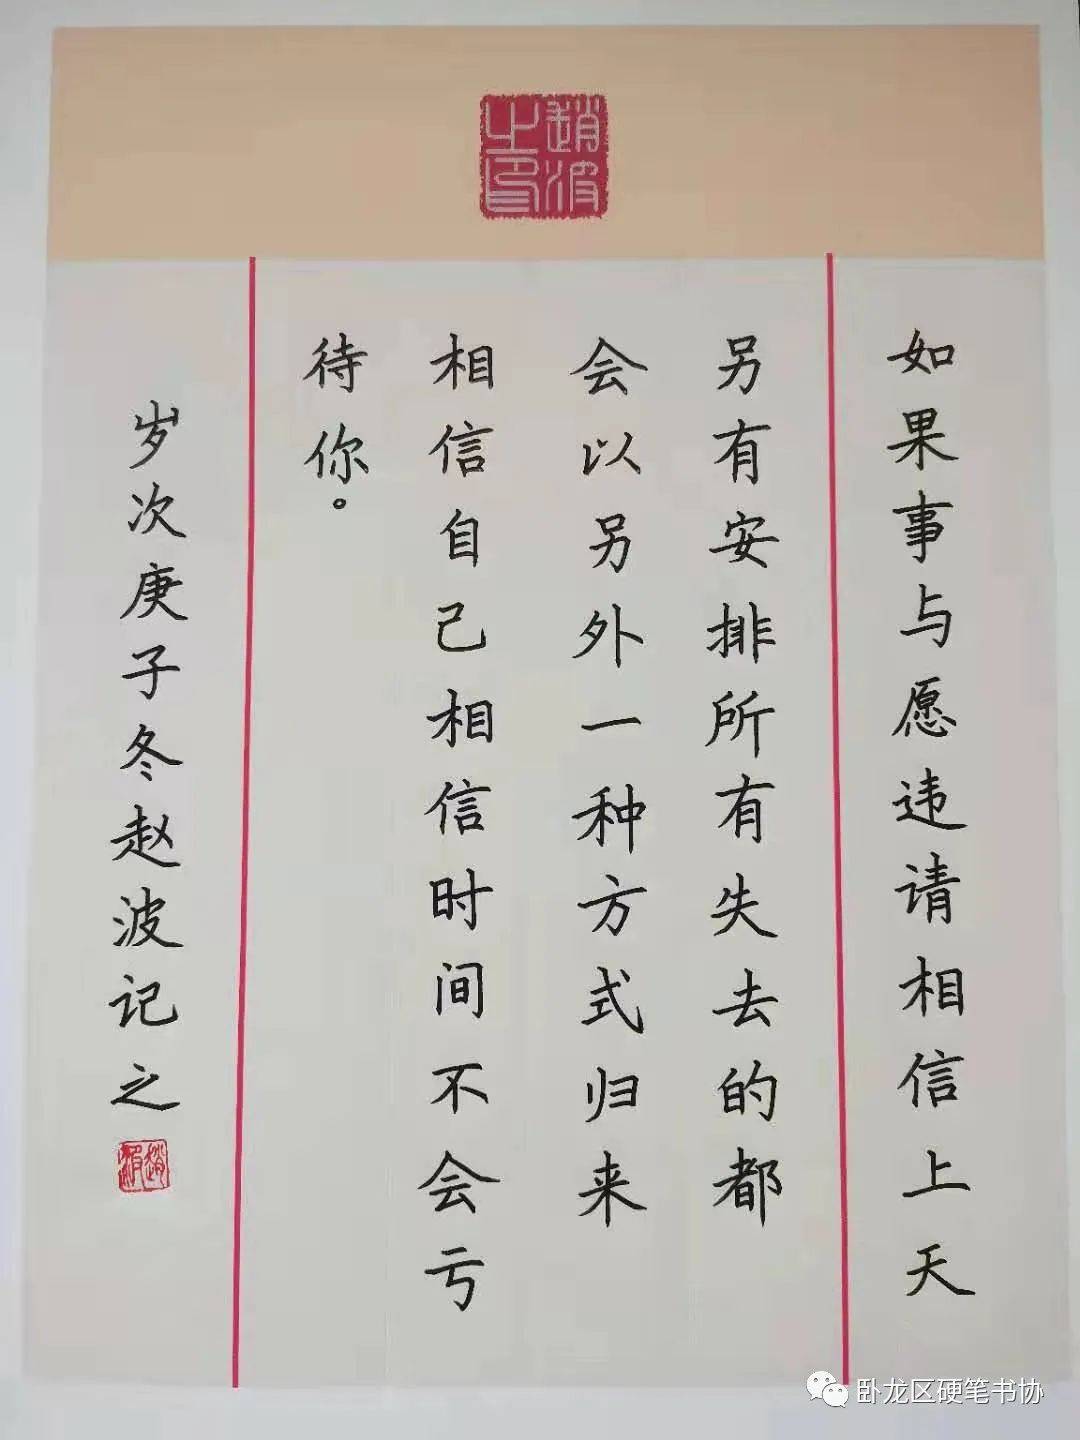 趙波之印
如果事与愿违请相信上天
另有安排所有失去的都
会以另外一种方式归来
相信自己相信时间不会亏
待你。
岁次庚子冬赵波记之
趙波
卧龙区硬笔书协